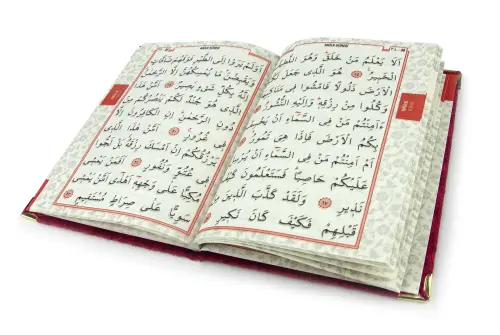 اَلَا يَعْلَمُ مَنْ خَلَقَ وَهُوَ اللَّط۪يفُ
الْخَب۪يرُ هُوَ الَّذ۪ي جَعَلَ لَكُمُ
الْاَرْضَ ذَلُولًا فَامْشُوا ف۪ي مَنَاكِبِهَا
وَكُلُوا مِنْ رِزْقِه۪ وَاِلَيْهِ النُّشُورُ
ءَاَمِنْتُمْ مَنْ فِي السَّمَٓاءِ اَنْ يَخْسِفَ
بِكُمُ الْاَرْضَ فَاِذَا هِيَ تَمُورُ
اَمْ اَمِنْتُمْ مَنْ فِي السَّمَٓاءِ اَنْ يُرْسِلَ
عَلَيْكُمْ حَاصِبًا فَسَتَعْلَمُونَ كَيْفَ
نَذ۪يرِ وَلَقَدْ كَذَّبَ الَّذ۪ينَ مِنْ
قَبْلِهِمْ فَكَيْفَ كَانَ نَك۪يرِ
اَوَلَمْ يَرَوْا اِلَى الطَّيْرِ فَوْقَهُمْ صَٓافَّاتٍ
وَيَقْبِضْنَ مَا يُمْسِكُهُنَّ اِلَّا الرَّحْمٰنُ
اِنَّهُ بِكُلِّ شَيْءٍ بَص۪يرٌ اَمَّنْ هٰذَا
الَّذ۪ي هُوَ جُنْدٌ لَكُمْ يَنْصُرُكُمْ مِنْ
دُونِ الرَّحْمٰنِ اِنِ الْكَافِرُونَ اِلَّا
ف۪ي غُرُورٍ اَمَّنْ هٰذَا الَّذ۪ي
يَرْزُقُكُمْ اِنْ اَمْسَكَ رِزْقَهُ بَلْ لَجُّوا
ف۪ي عُتُوٍّ وَنُفُورٍ اَفَمَنْ يَمْش۪ي
مُكِبًّا عَلٰى وَجْهِه۪ٓ اَهْدٰٓى اَمَّنْ يَمْش۪ي
سَوِيًّا عَلٰى صِرَاطٍ مُسْتَق۪يمٍ